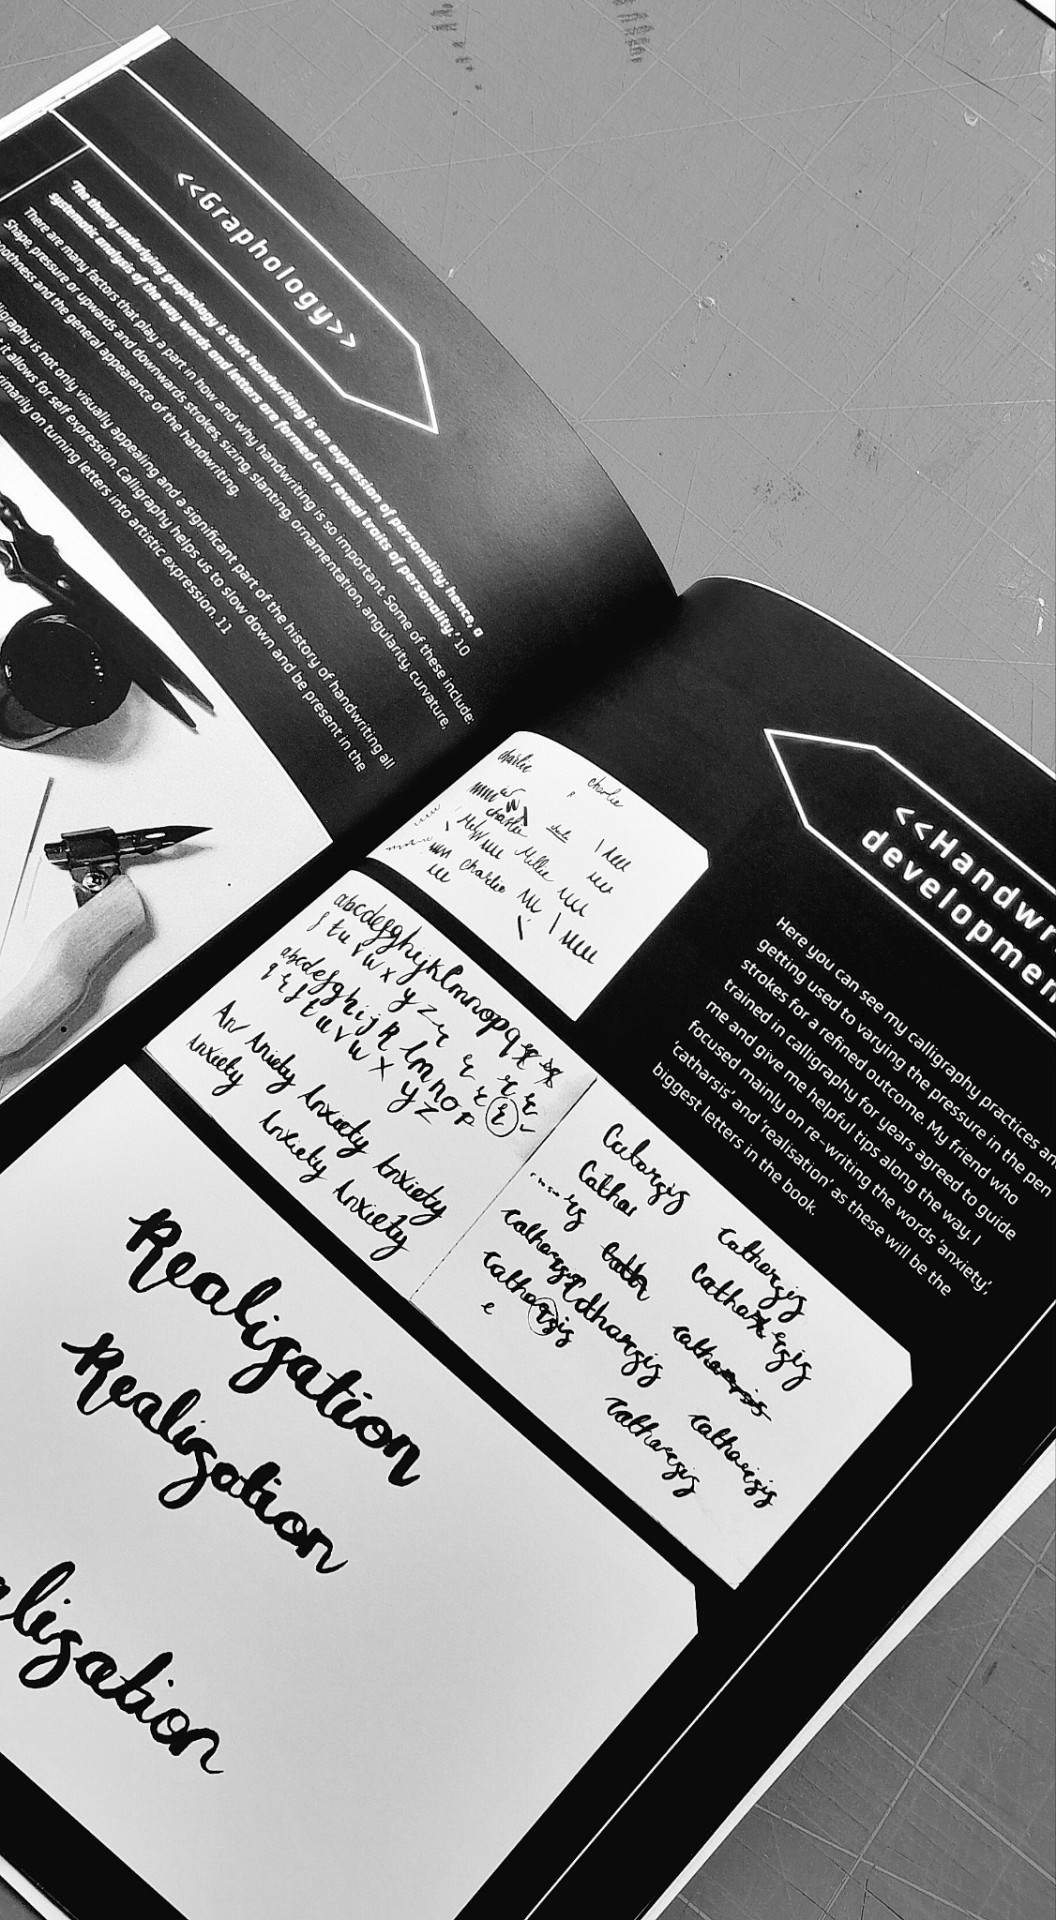 <<Graphology>>
'The theory underlying graphology is that handwriting is an expression of personality; hence, a
systematic analysis of the way words and letters are formed can reveal traits of personality.' 10
There are many factors that play a part in how and why handwriting is so important. Some of these include:
Shape, pressure or upwards and downwards strokes, sizing, slanting, ornamentation, angularity, curvature,
and the general appearance of the handwriting.
is not only visually appealing and a significant part of the history of handwriting all
it allows for self expression. Calligraphy helps us to slow down and be present in the
on turning letters into artistic expression. 11
<<Handwr
developmen
Here you can see my calligraphy practices an
getting used to varying the pressure in the pen
strokes for a refined outcome. My friend who
trained in calligraphy for years agreed to guide
me and give me helpful tips along the way. I
focused mainly on re-writing the words 'anxiety',
'catharsis' and 'realisation' as these will be the
biggest letters in the book.
charlie charlie
charlie
Millie
charlie
abcdefghijklmnopq
s t u v w x y z
abcdefghijk lmnop
q r s t u v w x y z
An Aniety Anxiety Anxiety
Anxiety Anxiety Anxiety
Cathar
Catharsis
Catharsis
Catharsis
Catharsis
Catharsis
Catharsis
Catharsis
Realization
Realization
alization